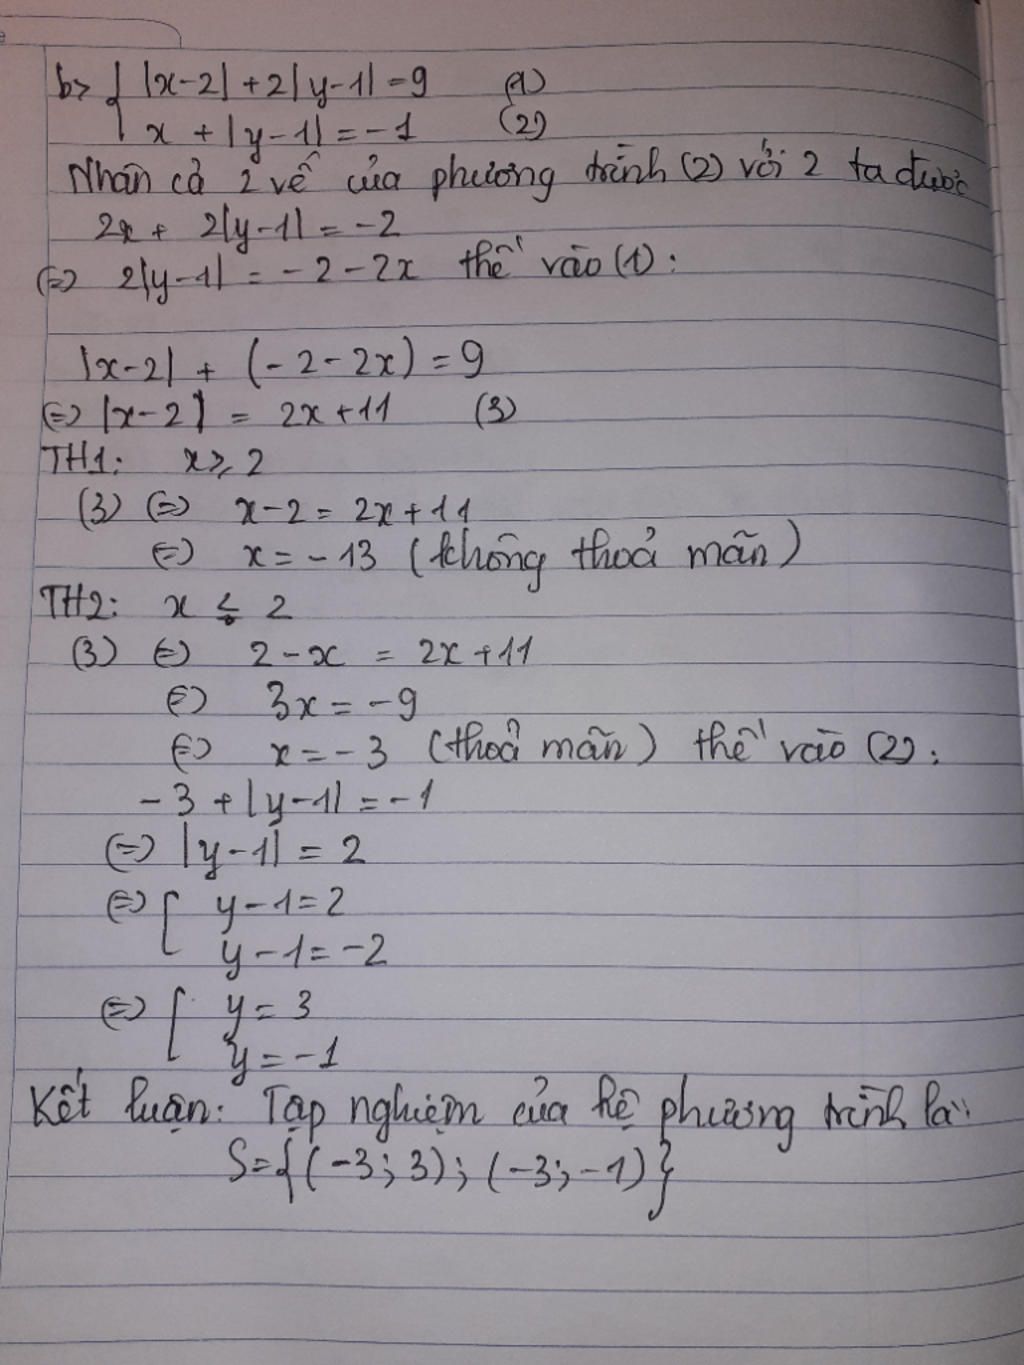 b> { |x-2| + 2|y-1| = 9 (1)
x + |y-1| = -1 (2)
Nhân cả 2 vế của phương trình (2) với 2 ta được
2x + 2|y-1| = -2
(=) 2|y-1| = -2-2x thế vào (1):
|x-2| + (-2-2x) = 9
(=) |x-2| = 2x+11 (3)
TH1: x ⩾ 2
(3) (=) x-2 = 2x+11
(=) x = -13 (không thoả mãn)
TH2: x ≤ 2
(3) (=) 2-x = 2x+11
(=) 3x = -9
(=) x = -3 (thoả mãn) thế vào (2):
-3 + |y-1| = -1
(=) |y-1| = 2
(=) [ y-1 = 2
y-1 = -2
(=) [ y = 3
y = -1
Kết luận: Tập nghiệm của hệ phương trình là:
S = {(-3; 3); (-3; -1)}